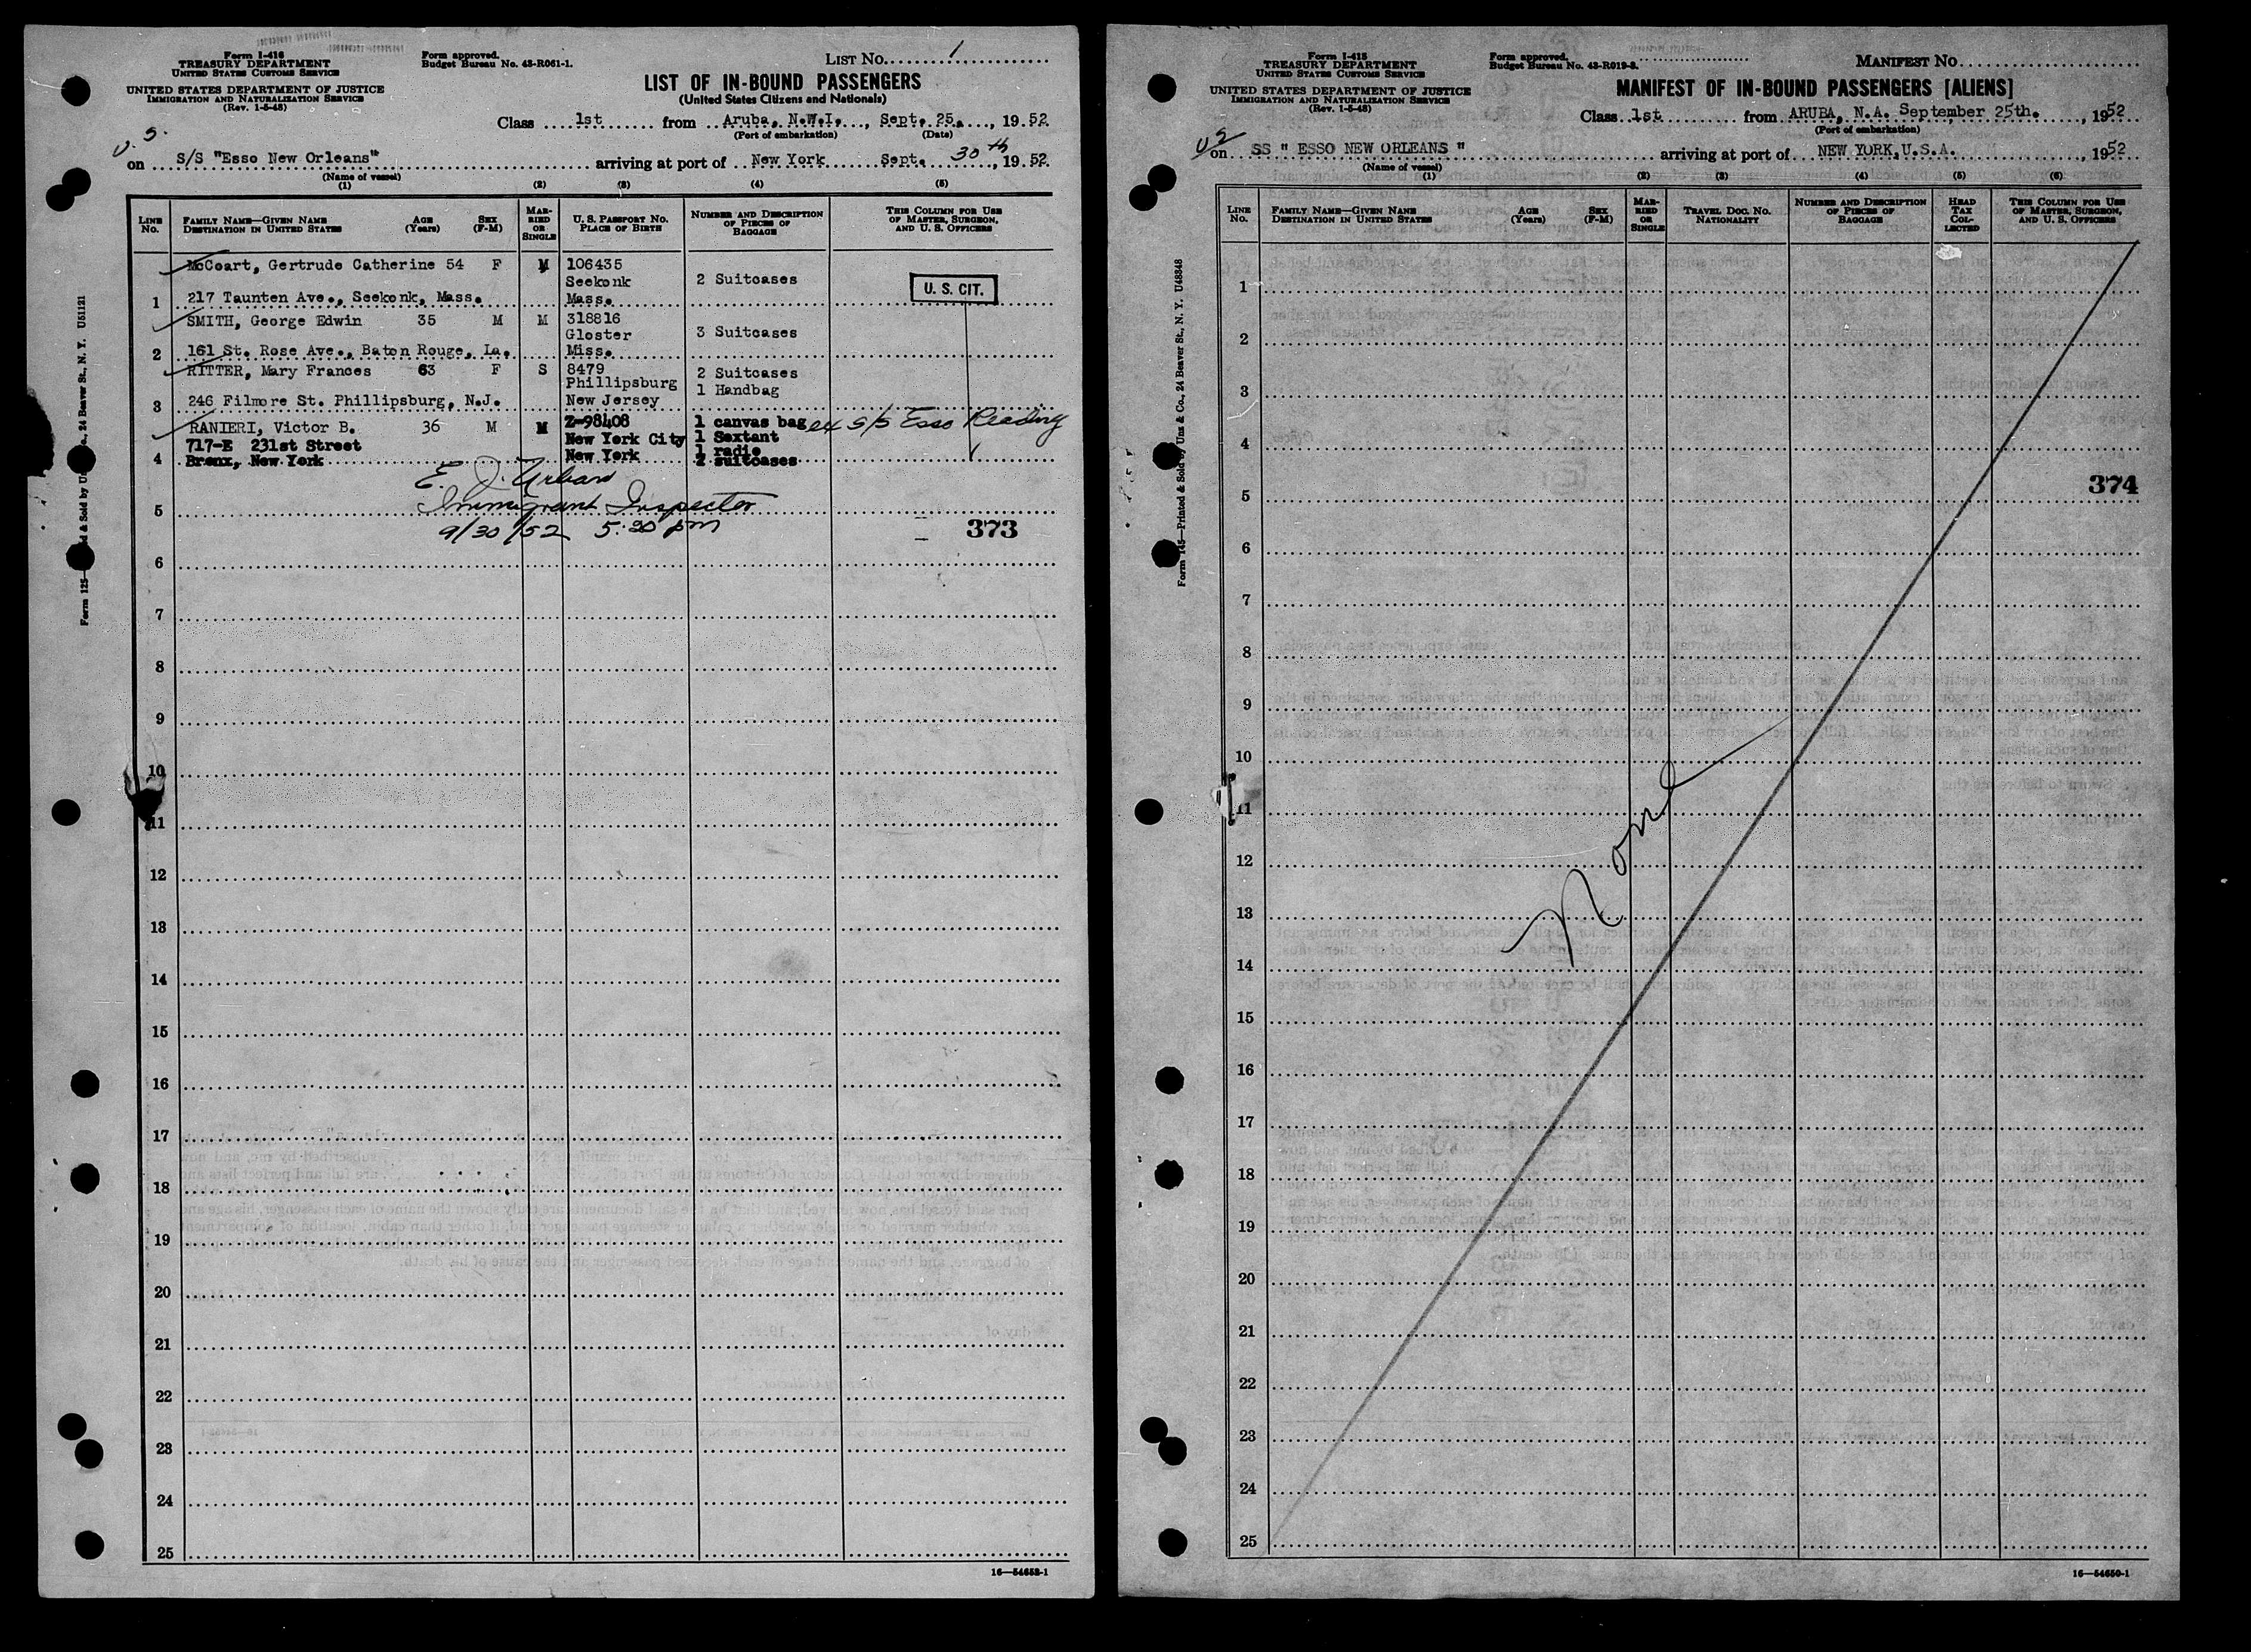 Form I-416
TREASURY DEPARTMENT
UNITED STATES CUSTOMS SERVICE
UNITED STATES DEPARTMENT OF JUSTICE
IMMIGRATION AND NATURALIZATION SERVICE
(Rev. 1-5-48)
Form approved.
Budget Bureau No. 43-R061-1.
LIST No. 1
LIST OF IN-BOUND PASSENGERS
(United States Citizens and Nationals)
Class 1st from Aruba, N.W.I., Sept. 25, 1952
(Port of embarkation) (Date)
U.S.
on S/S "Esso New Orleans" arriving at port of New York Sept. 30th, 1952
(Name of vessel)
(1) (2) (3) (4) (5)
LINE No.
FAMILY NAME—GIVEN NAME
DESTINATION IN UNITED STATES
AGE (Years)
SEX (F-M)
MARRIED OR SINGLE
U. S. PASSPORT NO.
PLACE OF BIRTH
NUMBER AND DESCRIPTION OF PIECES OF BAGGAGE
THIS COLUMN FOR USE OF MASTER, SURGEON, AND U. S. OFFICERS
McCoart, Gertrude Catherine 54 F M 106435
Seekonk 2 Suitcases U. S. CIT.
1 217 Taunten Ave., Seekonk, Mass. Mass.
SMITH, George Edwin 35 M M 318816
Gloster 3 Suitcases
2 161 St. Rose Ave., Baton Rouge, La. Miss.
RITTER, Mary Frances 63 F S 8479 2 Suitcases
Phillipsburg 1 Handbag
3 246 Filmore St. Phillipsburg, N.J. New Jersey
RANIERI, Victor B. 36 M M Z-98408 1 canvas bag ex S/S Esso Reading
717-E 231st Street New York City 1 Sextant
4 Bronx, New York New York 1 radio
2 suitcases
E. J. Urban
5 Immigrant Inspector
9/30/52 5:20 pm 373
6
7
8
9
10
11
12
13
14
15
16
17
18
19
20
21
22
23
24
25
16—54652-1
Form I-415
TREASURY DEPARTMENT
UNITED STATES CUSTOMS SERVICE
UNITED STATES DEPARTMENT OF JUSTICE
IMMIGRATION AND NATURALIZATION SERVICE
(Rev. 1-5-48)
Form approved.
Budget Bureau No. 43-R019-3.
MANIFEST No.
MANIFEST OF IN-BOUND PASSENGERS [ALIENS]
Class 1st from ARUBA, N.A. September 25th., 1952
(Port of embarkation)
US
on SS " ESSO NEW ORLEANS " arriving at port of NEW YORK, U.S.A., 1952
(Name of vessel)
(1) (2) (3) (4) (5) (6)
LINE No.
FAMILY NAME—GIVEN NAME
DESTINATION IN UNITED STATES
AGE (Years)
SEX (F-M)
MARRIED OR SINGLE
TRAVEL DOC. NO.
NATIONALITY
NUMBER AND DESCRIPTION OF PIECES OF BAGGAGE
HEAD TAX COLLECTED
THIS COLUMN FOR USE OF MASTER, SURGEON, AND U. S. OFFICERS
Form 145—Printed & Sold by Unz & Co., 24 Beaver St., N. Y. U48348
1
2
3
4
374
5
6
7
8
9
10
11
None
12
13
14
15
16
17
18
19
20
21
22
23
24
25
16—54650-1